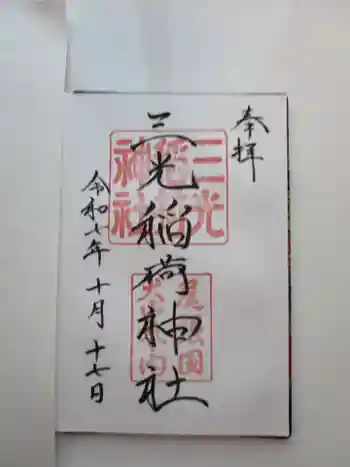 奉拝
三光稲荷神社
令和六年十月十七日
三光稲荷神社